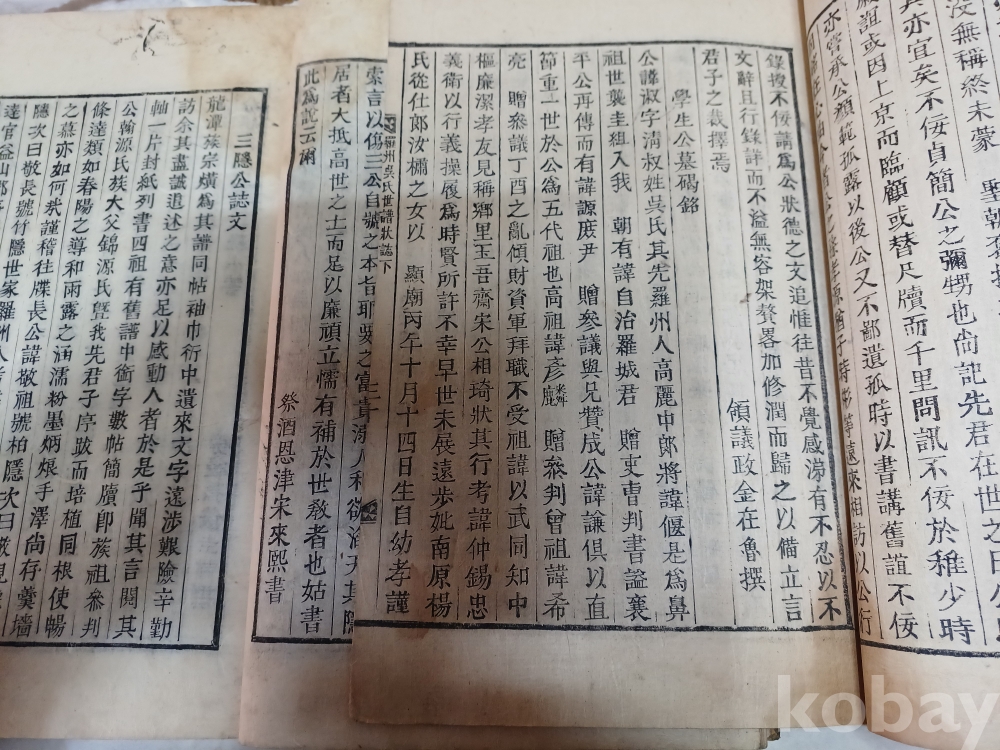 沒無稱終未蒙 聖朝褒
其亦宜矣不佞貞簡公之彌甥也尙記先君在世之日公
誼或因上京而臨顧或替尺牘而千里問訊不佞於稚少時
亦嘗承公顔範孤露以後公又不鄙遺孤時以書講舊誼不佞
遠來相訪以公行
錄搜不佞請爲公狀德之文追惟往昔不覺感涕有不忍以不
文辭且行錄詳而不溢無容架贅畧加修潤而歸之以備立言
君子之裁擇焉
領議政金在魯撰
學生公墓碣銘
公諱淑字淸叔姓吳氏其先羅州人高麗中郞將諱偃是爲鼻
祖世襲圭組入我 朝有諱自治羅城君 贈吏曺判書謚襄
平公再傳而有諱謜庶尹 贈參議與兄贊成公諱謙俱以直
節重一世於公爲五代祖也高祖諱彦麟 贈叅判曾祖諱希
亮 贈參議丁酉之亂傾財資軍拜職不受祖諱以武同知中
樞廉潔孝友見稱鄕里玉吾齋宋公相琦狀其行考諱仲錫忠
義衛以行義操履爲時賢所許不幸早世未展遠步妣南原楊
氏從仕郞汝橚之女以 顯廟丙午十月十四日生自幼孝謹
羅州吳氏世譜狀誌下
索言以傷三公自號之本旨耶
居者大抵高世之士而足以廉頑立懦有補於世敎者也姑書
此爲記云爾
祭酒恩津宋來熙書
三隱公誌文
龍潭族宗爀爲其譜同帖袖巾衍中遺來文字遠涉艱險辛勤
訪余其盡誠追述之意亦足以感動人者於是乎聞其言閱其
軸一片封紙列書四祖有舊譜中銜字數帖簡牘卽族祖參判
公翰源氏族大父錦源氏曁我先君子序跋而培植同根使暢
條達類如春陽之導和雨露之涵濡粉墨炳烺手澤尙存羹墻
之慕亦如何哉謹稽往牒長公諱敬祖號柏隱次曰
隱次曰敬長號竹隱世家羅州
kobay